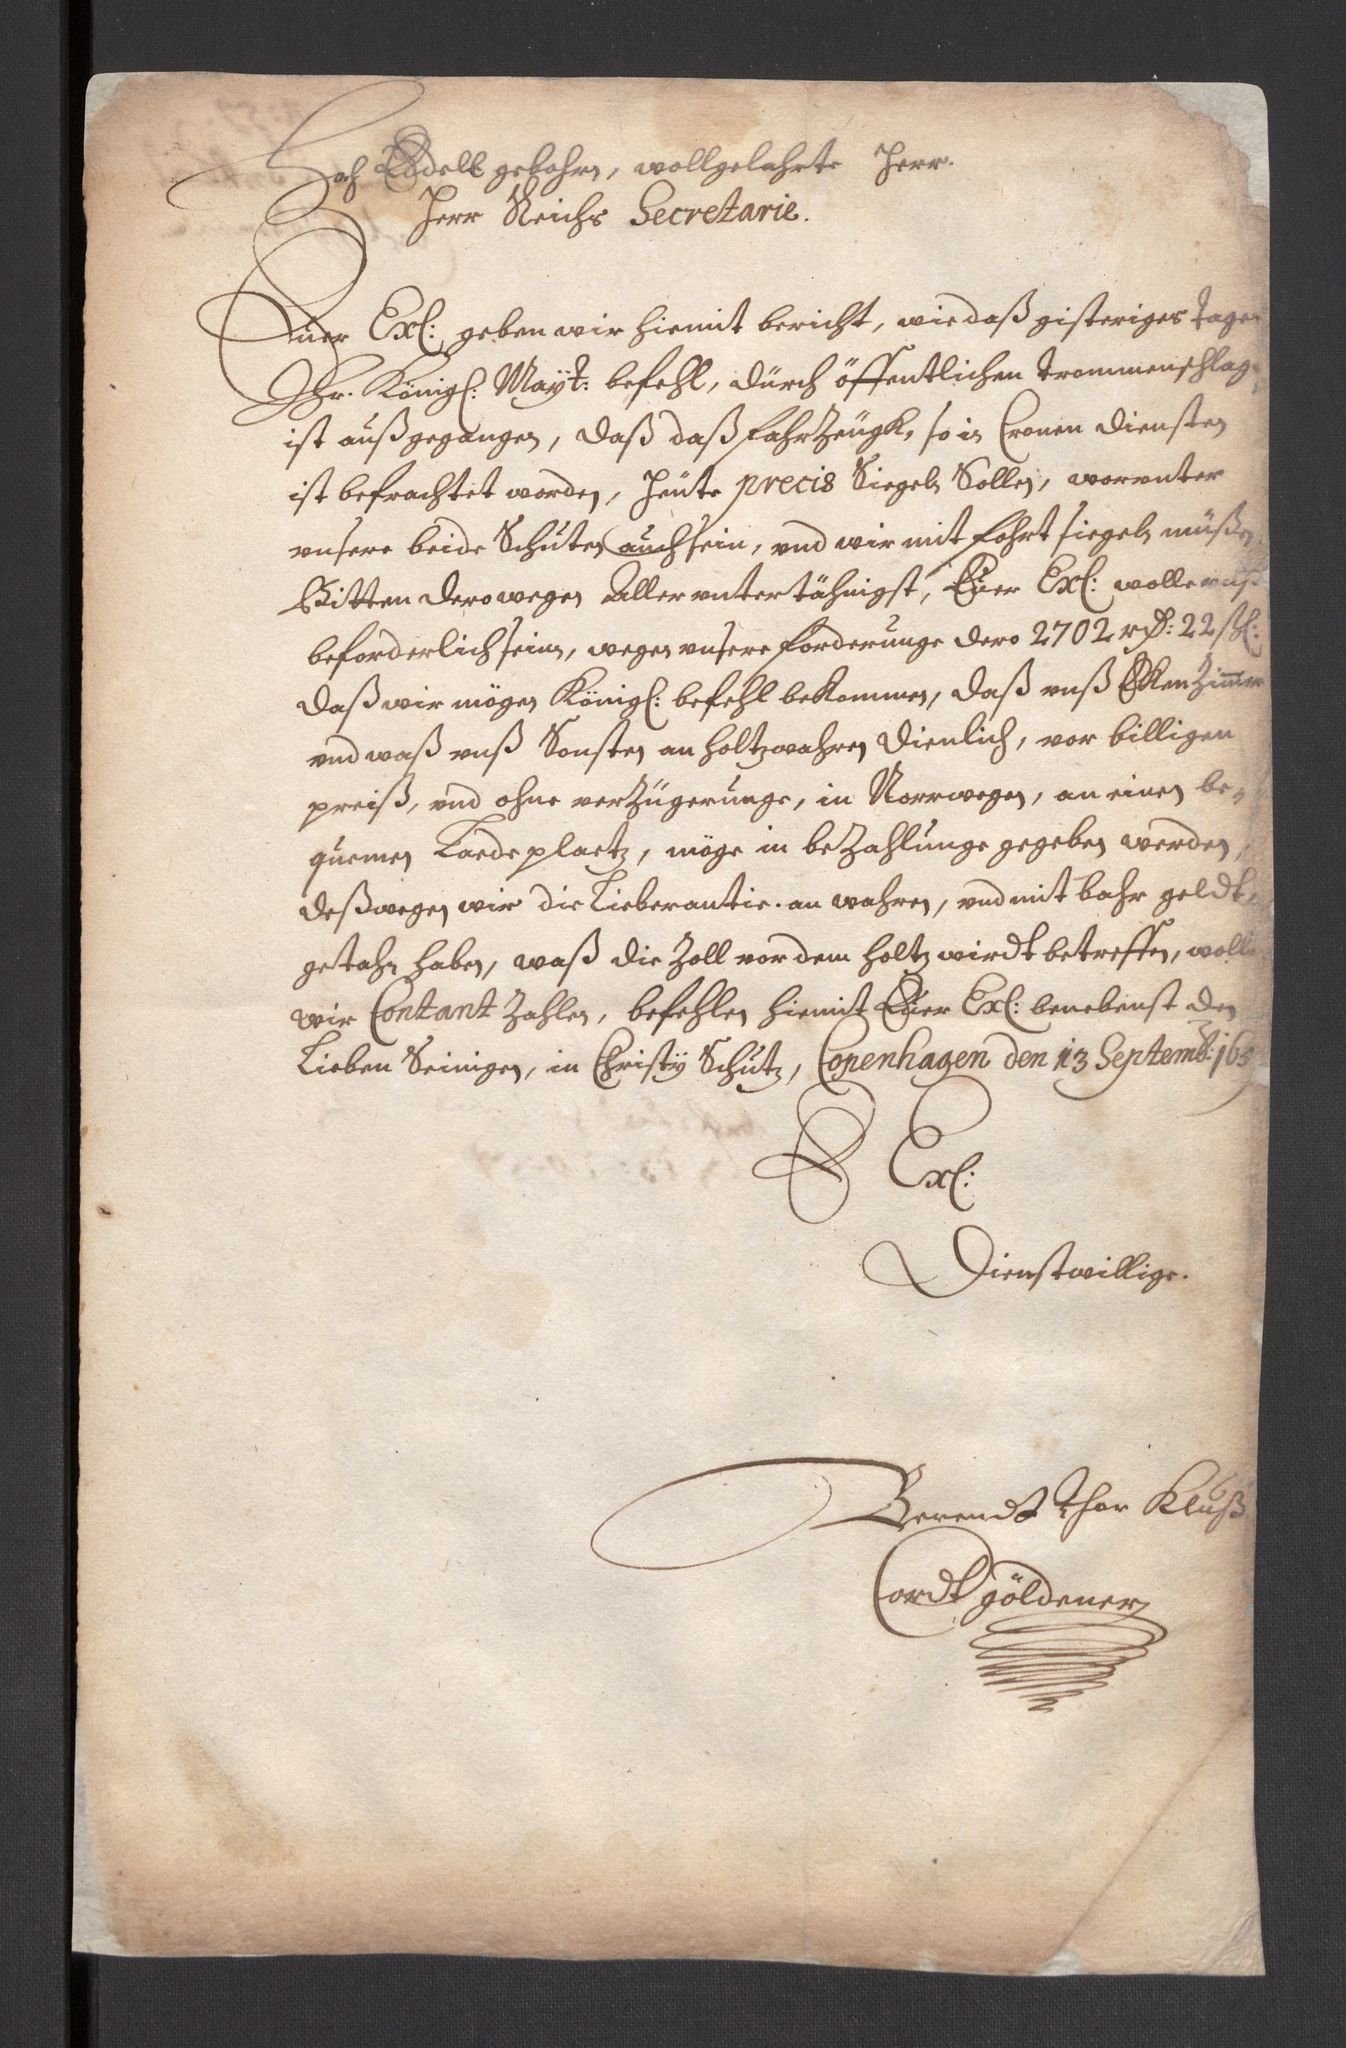 Hoch Eddell gebohrn, wollgelahrte Herr.
Herr Reichs Secretarie.
Euer Exl: geben wir hiemit bericht, wie daß gisteriges tages
Ihr. Königl: Mayt: befehl, dürch öffentlichen trommenschlag
ist außgegangen, daß daß fahrzeügk, so in Cronen diensten
ist befrachtet worden, heüte precis Siegeln Sollen, worunter
unsere beide Schuten auch sein, und wir mit fohrt siegeln müßen,
Bitten derowegen aller untertähnigst, Euer Exl: wolle unß
beforderlich sein, wegen unsere forderunge dero 2702 rd: 22 ßl:
daß wir mögen Königl: befehl bekommen, daß unß EkenZimmer
und waß unß Sonsten an holtzwahren dienlich, vor billigen
preiß, und ohne verzügerunge, in Norrwegen, an einen be-
quemen Laedeplaetz, möge in bezahlunge gegeben werden,
deßwegen wir die Lieberantie. an wahren, und mit bahr geldt,
getahn haben, waß die Zoll vor dem holtz wirdt betreffen, wolle
wir Contant Zahlen, befehlen hiemit Euer Exl: benebenst den
Lieben Seinigen, in Christy Schutz, Copenhagen den 13 Septemb: 165
E Exl:
Dienstwillige.
Berendt thor Kluß
Cordt göldener